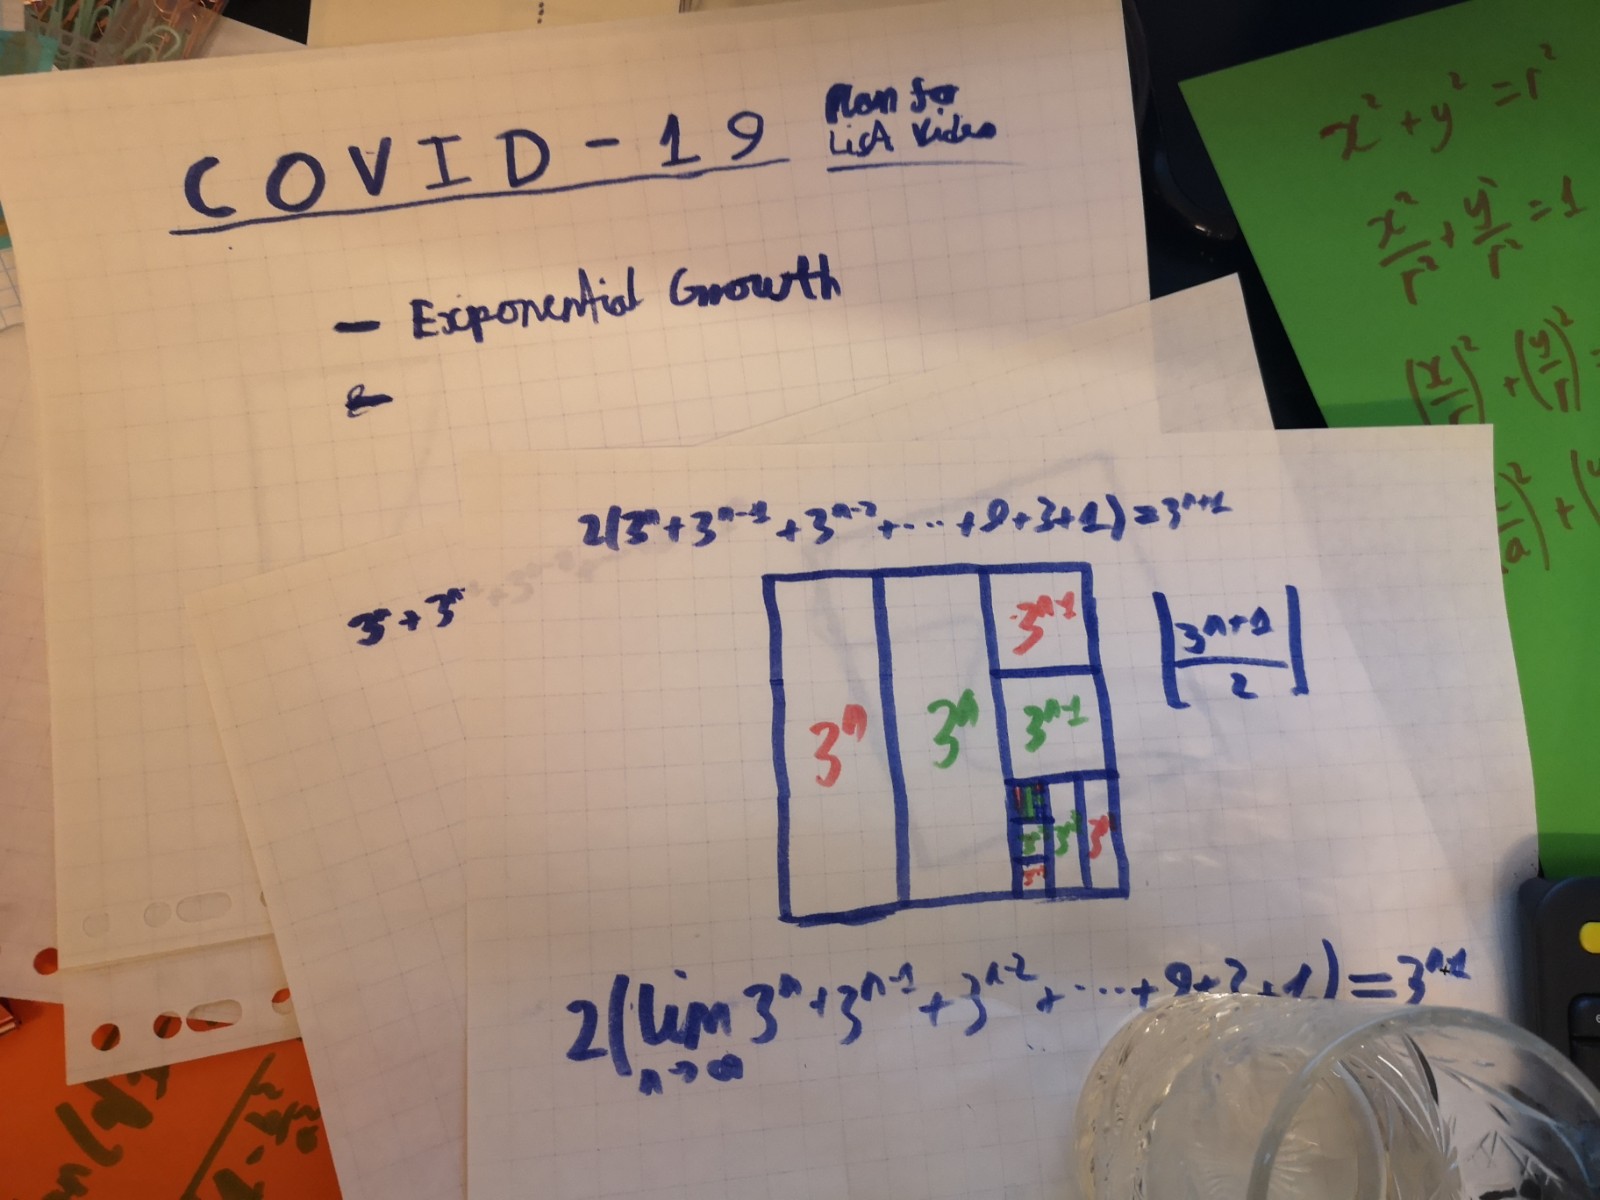 COVID-19
Plan for
List Video
- Exponential Growth
x² + y² = r²
x²/r² + y²/r² = 1
(x/r)² + (y/r)² =
2(3ⁿ+3ⁿ⁻¹+3ⁿ⁻²+...+9+3+1)=3ⁿ⁺¹
3ⁿ+3ⁿ
3ⁿ 3ⁿ 3ⁿ⁻¹
3ⁿ⁻¹
⌊3ⁿ⁺¹/2⌋
2(lim n→∞ 3ⁿ+3ⁿ⁻¹+3ⁿ⁻²+...+9+3+1)=3ⁿ⁺¹